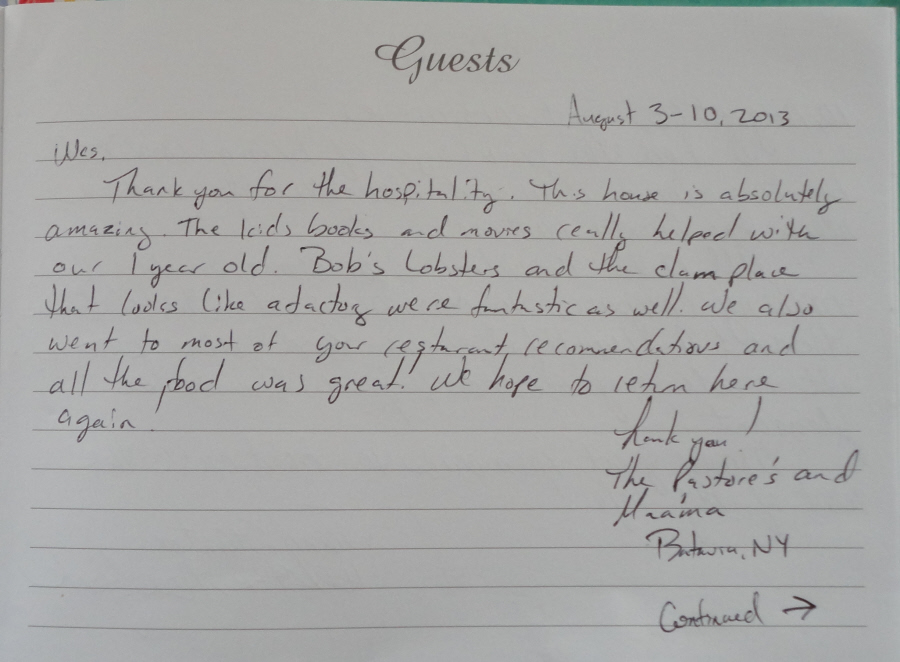 Guests
August 3-10, 2013
Wes,
Thank you for the hospitality. This house is absolutely
amazing. The kids books and movies really helped with
our 1 year old. Bob's Lobsters and the clam place
that looks like a factory were fantastic as well. We also
went to most of your restaurant recommendations and
all the food was great! We hope to return here
again!
Thank you!
The Pastore's and
Batavia, NY
Continued →